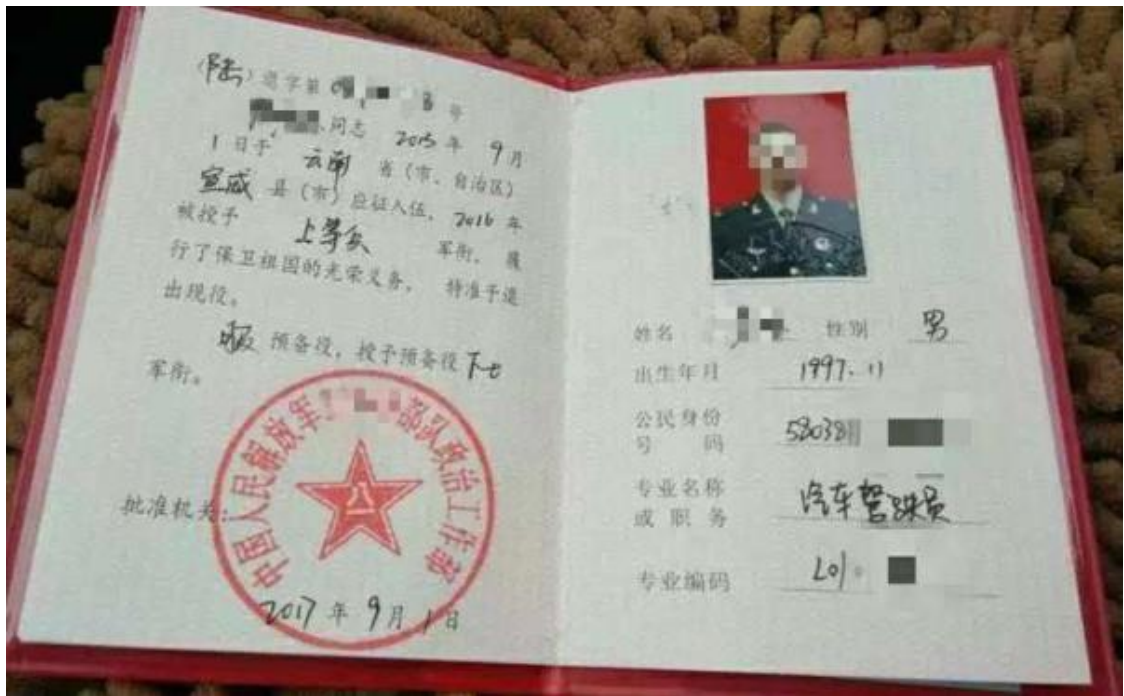 (陆)退字第 号
同志 2015年 9月
1日于 云南 省(市、自治区)
宣威 县(市)应征入伍,2016年
被授予 上等兵 军衔,履
行了保卫祖国的光荣义务,特准予退
出现役。
服 预备役,授予预备役下士
军衔。
中国人民解放军 部队政治工作部
八一
批准机关:
2017年9月1日
姓名 性别 男
出生年月 1997.11
公民身份
号 码
专业名称 汽车驾驶员
或职务
专业编码